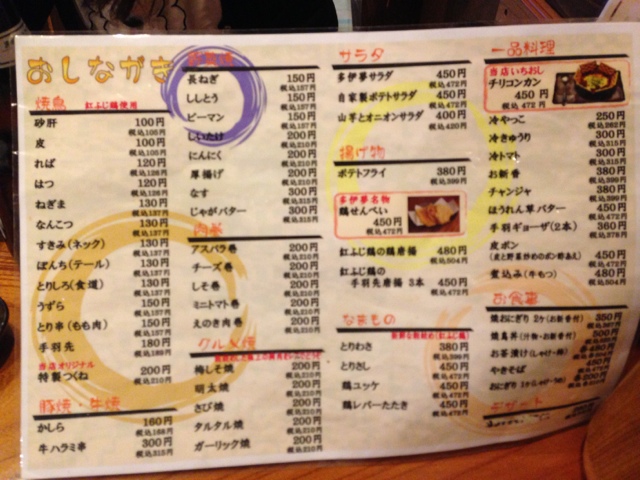 おしながき
焼鳥 紅ふじ鶏使用
砂肝 100円 税込105円
皮 100円 税込105円
ればー 120円 税込126円
はつ 120円 税込126円
ねぎま 130円 税込137円
なんこつ 130円 税込137円
すきみ(ネック) 130円 税込137円
ぼんち(テール) 130円 税込137円
とりしろ(食道) 130円 税込137円
うずら 150円 税込157円
とり串(もも肉) 150円 税込157円
手羽先 180円 税込189円
当店オリジナル
特製つくね 200円 税込210円
豚焼・牛焼
かしら 160円 税込168円
牛ハラミ串 300円 税込315円
長ねぎ 150円 税込157円
ししとう 150円 税込157円
ピーマン 150円 税込157円
しいたけ 200円 税込210円
にんにく 200円 税込210円
厚揚げ 200円 税込210円
なす 300円 税込315円
じゃがバター 300円 税込315円
肉巻
アスパラ巻 200円 税込210円
チーズ巻 200円 税込210円
しそ巻 200円 税込210円
ミニトマト巻 200円 税込210円
えのき肉巻 200円 税込210円
グルメ焼
梅しそ焼 200円 税込210円
明太焼 200円 税込210円
さび焼 200円 税込210円
タルタル焼 200円 税込210円
ガーリック焼 200円 税込210円
サラダ
多伊夢サラダ 450円 税込472円
自家製ポテトサラダ 450円 税込472円
山芋とオニオンサラダ 400円 税込420円
揚げ物
ポテトフライ 380円 税込399円
多伊夢名物
鶏せんべい 450円 税込472円
紅ふじ鶏の鶏唐揚 480円 税込504円
紅ふじ鶏の
手羽先唐揚 3本 450円 税込472円
なまもの
とりわさ 380円 税込399円
とりさし 450円 税込472円
鶏ユッケ 450円 税込472円
鶏レバーたたき 450円 税込472円
一品料理
当店いちおし
チリコンカン
450円
税込472円
冷やっこ 250円 税込262円
冷きゅうり 300円 税込315円
冷トマト 300円 税込315円
お新香 380円 税込399円
チャンジャ 380円 税込399円
ほうれん草バター 450円 税込472円
手羽ギョーザ(2本) 360円 税込378円
皮ポン
(皮と野菜炒めのポン酢あえ) 450円 税込472円
煮込み(牛もつ) 480円 税込504円
お食事
焼おにぎり 2ケ(お新香付) 350円 税込367円
焼鳥丼(汁物・お新香付) 500円
お茶漬け(しゃけ・梅)
やきそば
おにぎり
デザート